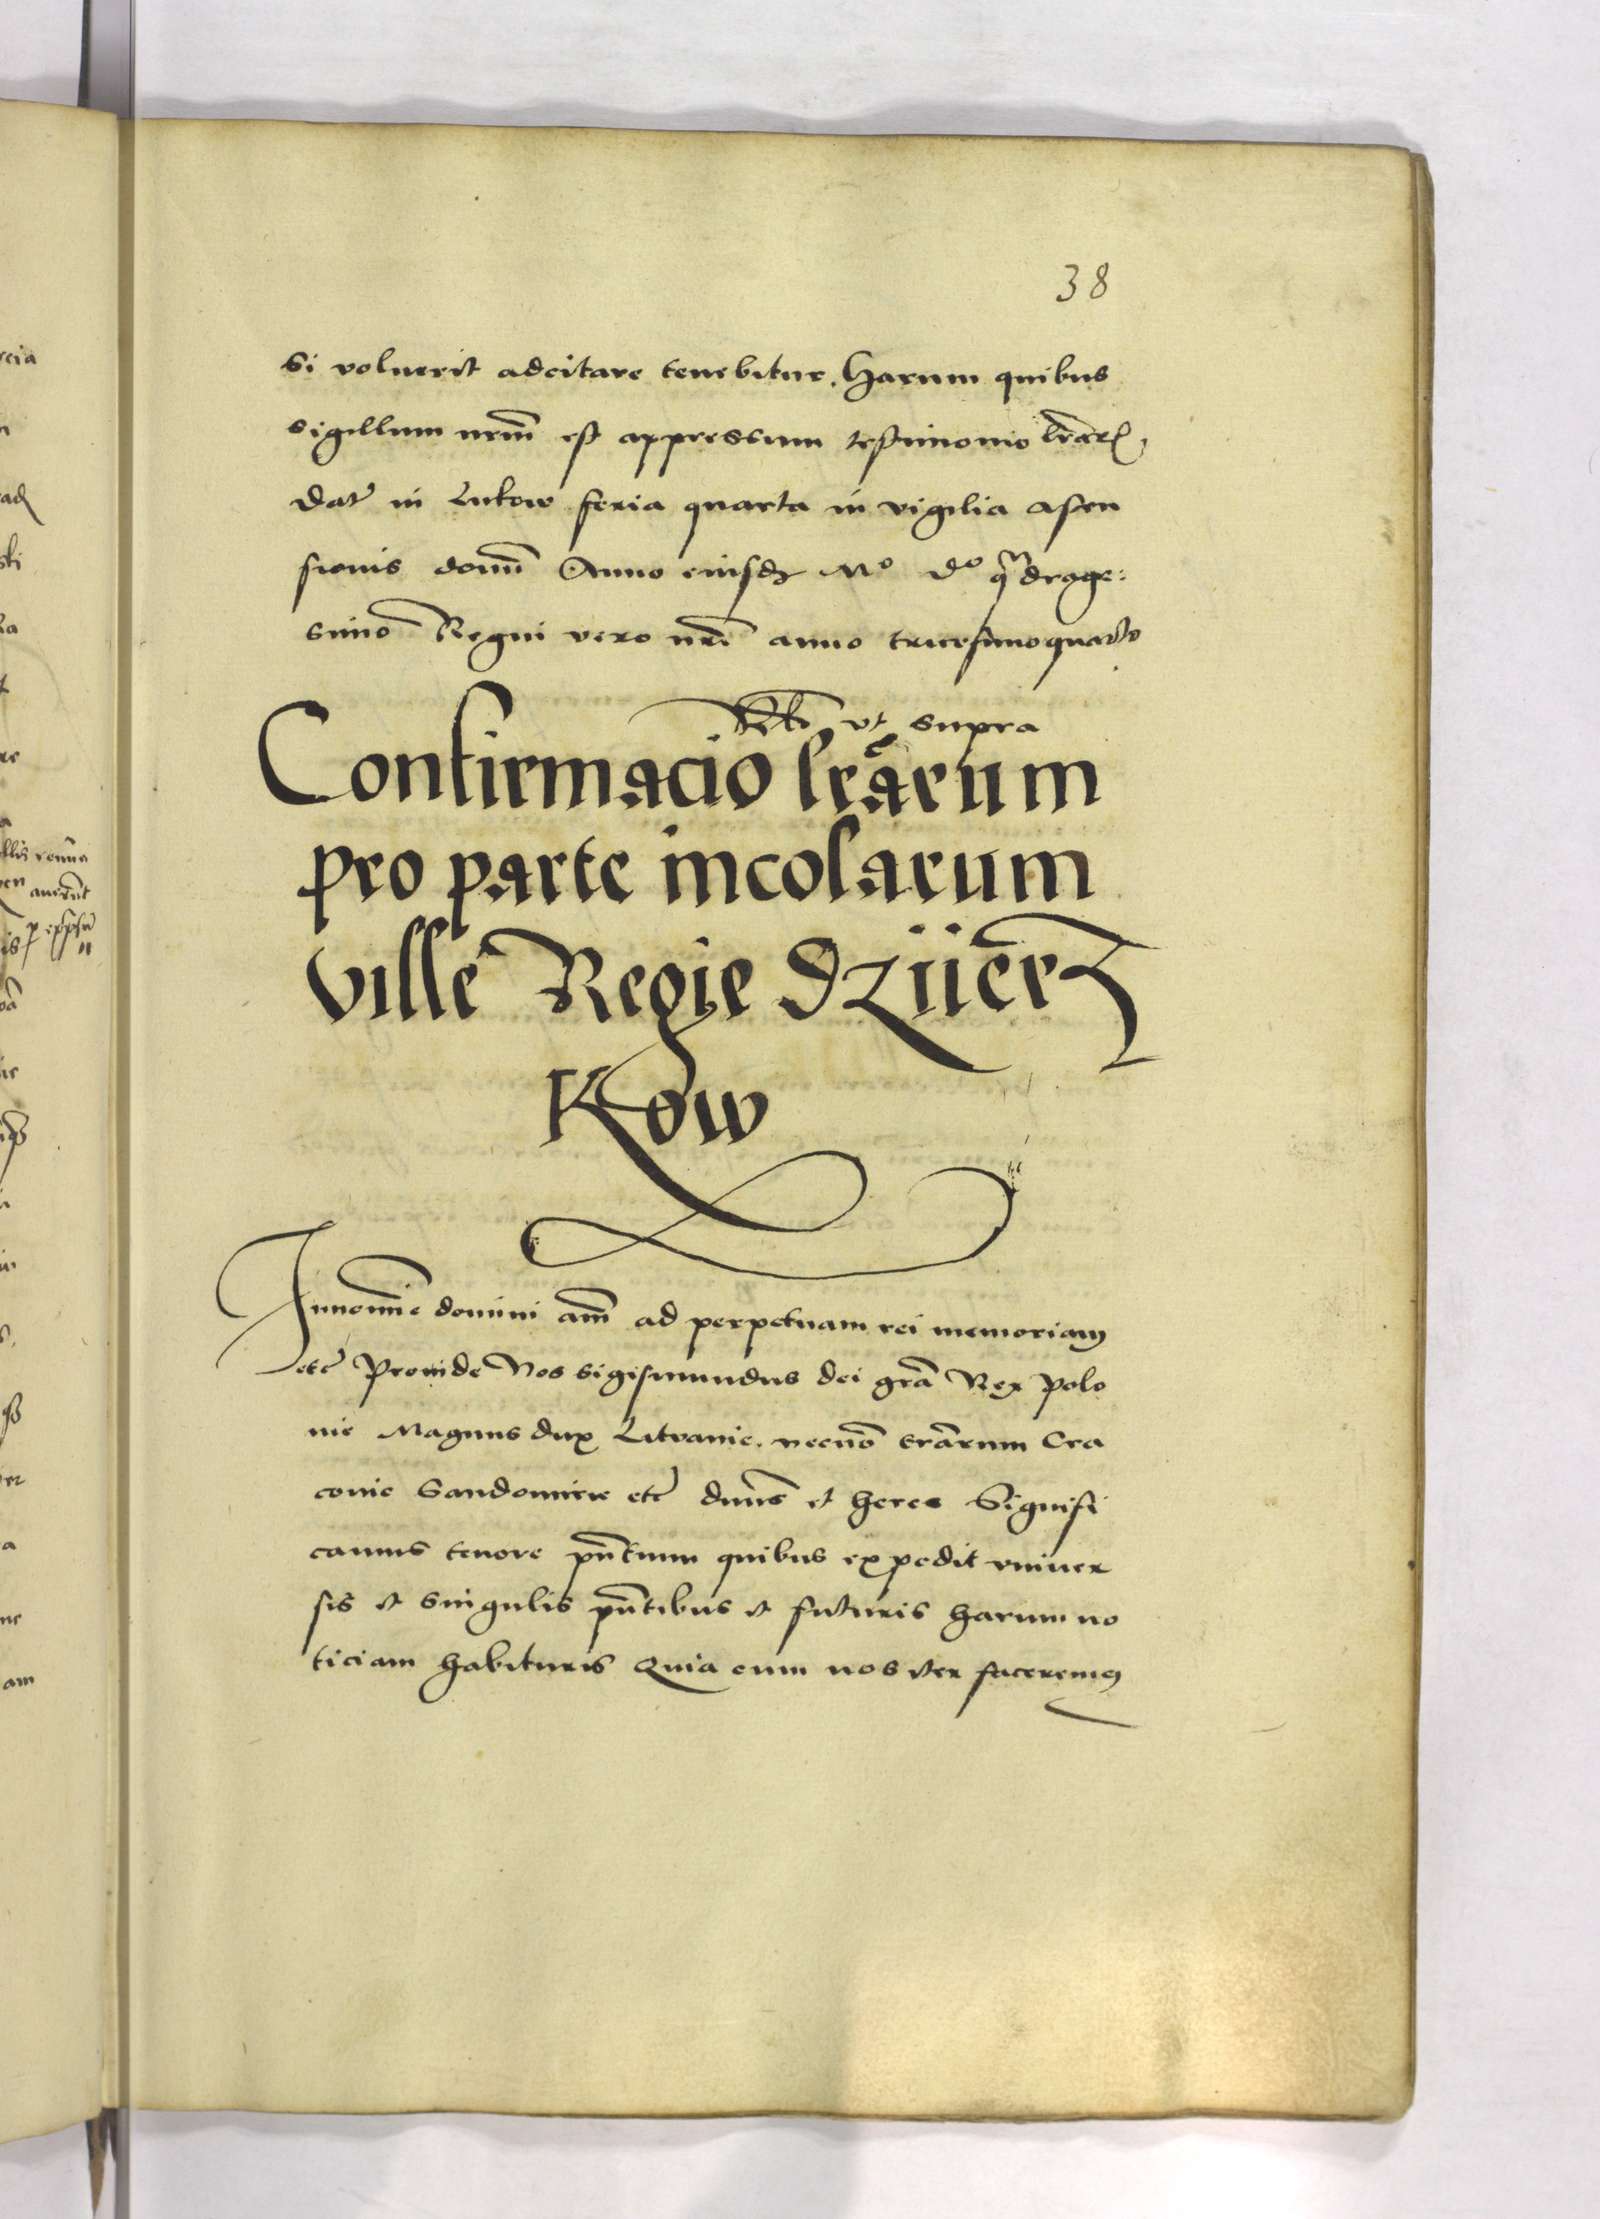 38
si voluerit adcitare tenebitur. Harum quibus
sigillum nrm̄ est appressum testimonio lrār̄.
Dat̄ in Lukow feria quarta in vigilia ascen
sionis domī Anno eiusdē Mº Dº qᵃdrage:
simo Regni vero nrī anno tricesimoquarto
ut supra
Confirmacio lrārum
pro parte incolarum
ville Regie Dziierz
Kow
In nomīe domini am̄ ad perpetuam rei memoriam
etc̄ Proinde Nos Sigismundus dei grā Rex Polo
nie Magnus dux Litvanie. necnō trārum Cra
covie Sandomirie etc̄ dnūs et heres Signifi
camus tenore pn̄tium quibus expedit univer
sis et singulis pn̄tibus et futuris harum no
ticiam habituris Quia cum nos iter faceremus